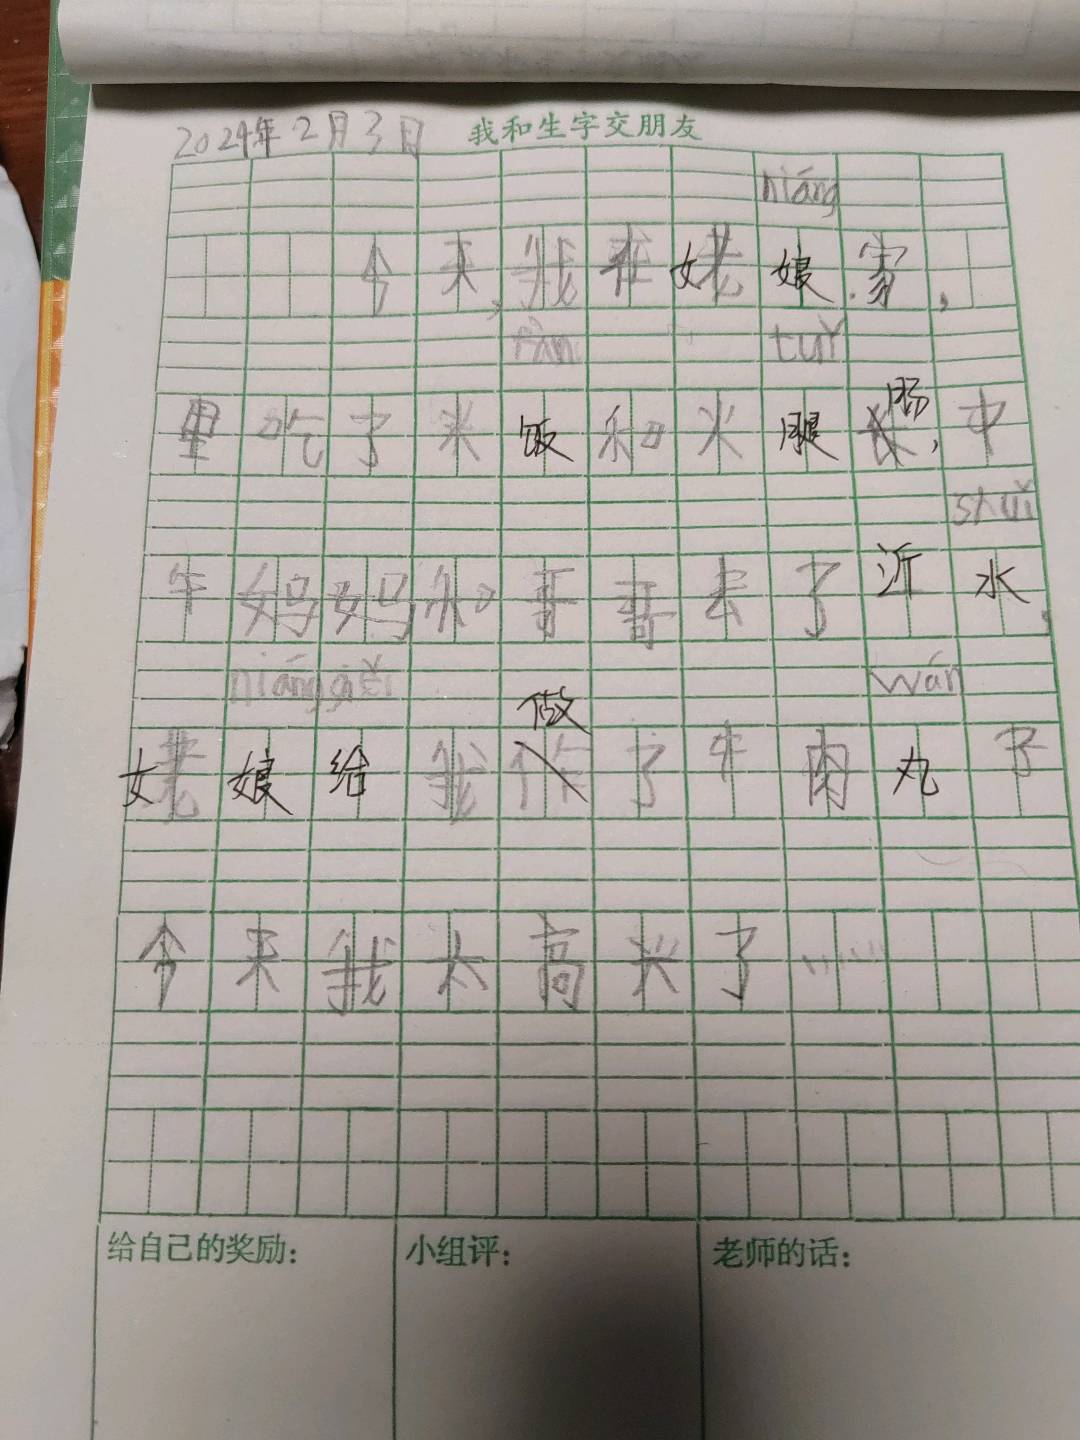 2024年2月3日 我和生字交朋友
niáng
今天,我在姥娘家,
fàn tuǐ
肠
里吃了米饭和火腿长,中
shuǐ
午妈妈和哥哥去了沂水,
niáng gěi wán
做
姥娘给我作了牛肉丸子
今天我太高兴了……
给自己的奖励: 小组评: 老师的话: